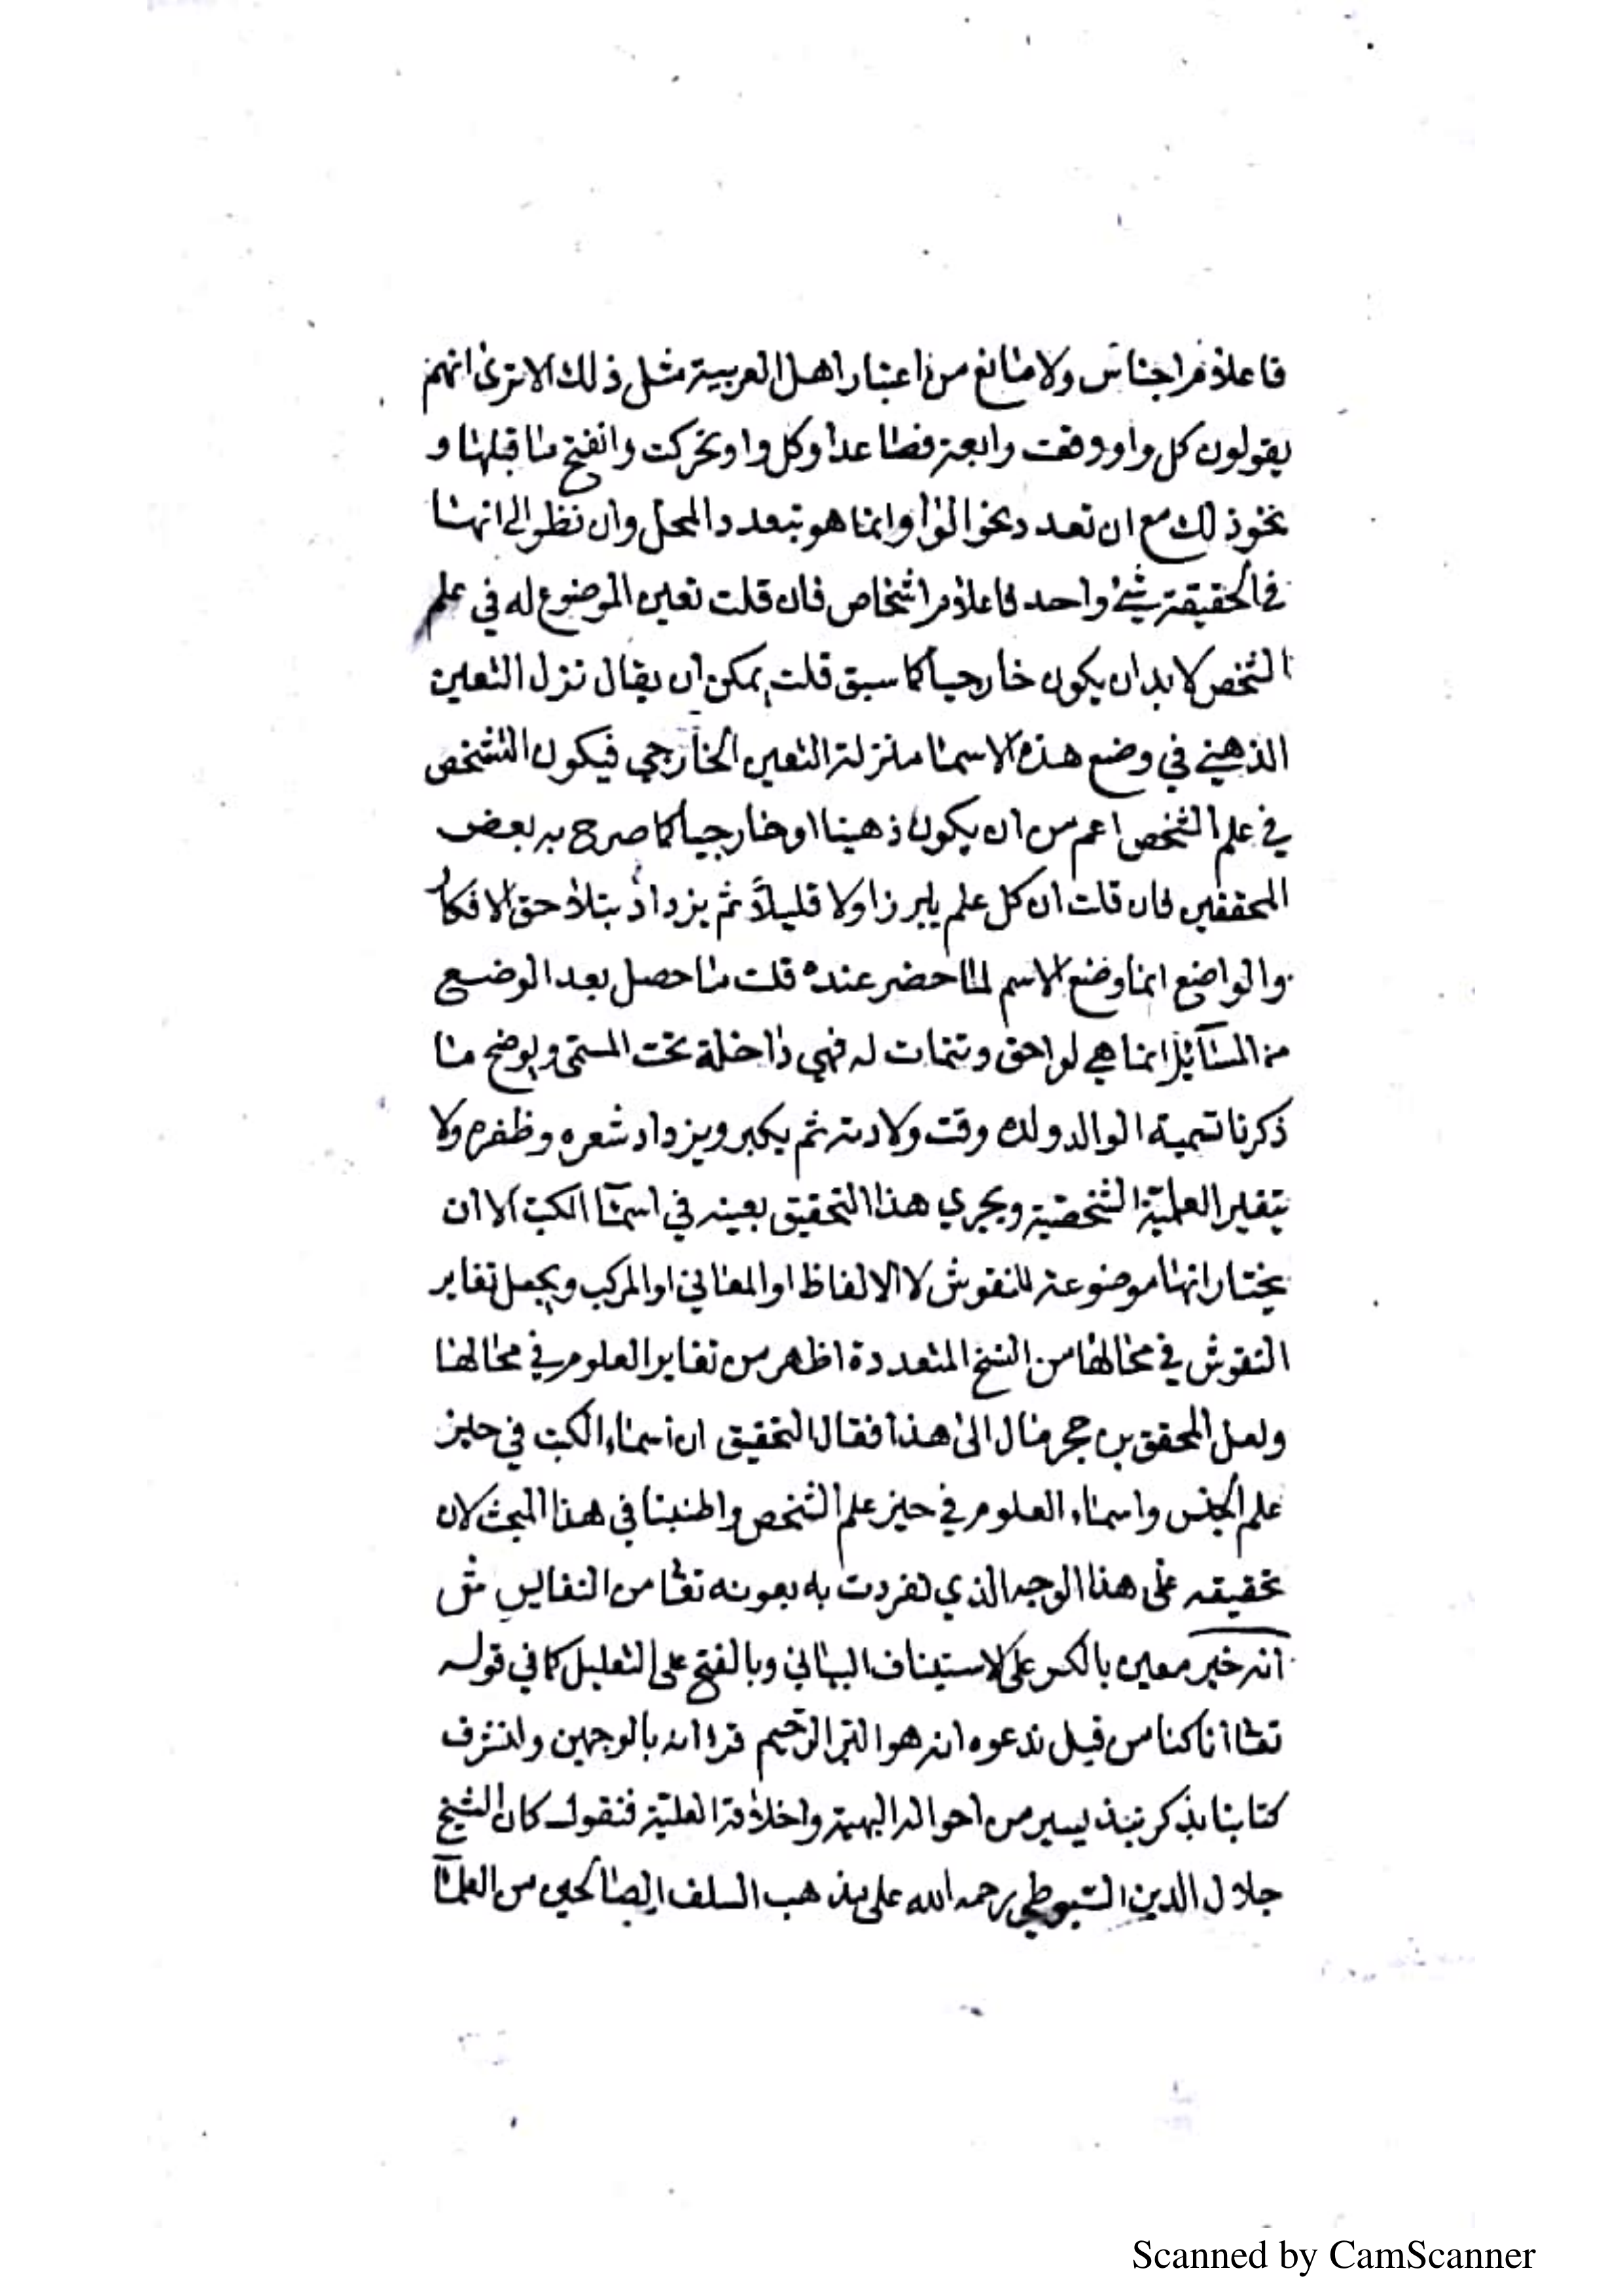 فاعلام اجناس ولا مانع من اعتبار اهل العربية مثل ذلك الا ترى انهم
يقولون كل واو وقعت رابعة فصاعدا وكل واو تحركت وانفتح ما قبلها و
نحو ذلك مع ان تعدد نحو الواو انما هو بتعدد المحل وان نظر الى انها
في الحقيقة شئ واحد فاعلام اشخاص فان قلت تعين الموضوع له في علم
الشخص لا بد ان يكون خارجيا كما سبق قلت يمكن ان يقال نزل التعين
الذهني في وضع هذه الاسما منزلة التعين الخارجي فيكون التشخص
في علم الشخص اعم من ان يكون ذهينا او خارجيا كما صرح به بعض
المحققين فان قلت ان كل علم يبرز اولا قليلاً ثم يزداد بتلاحق الافكار
والواضع انما وضع الاسم لما حضر عنده قلت ما حصل بعد الوضع
من المسآئل انما هي لواحق وتتمات له فهي داخلة تحت المسمى ويوضح ما
ذكرنا تسمية الوالد ولده وقت ولادته ثم يكبر ويزداد شعره وظفره ولا
يتغير العلميّة الشخصيّة ويجري هذا التحقيق بعينه في اسمآ الكتب الا ان
يختار انها موضوعة للنقوش لا الالفاظ او المعاني او المركب ويجعل تغاير
النقوش في محالها من النسخ المتعددة اظهر من تغاير العلوم في محالها
ولعل المحقق بن حجر مال الى هذا فقال التحقيق ان اسماء الكتب في حيز
علم الجنس واسماء العلوم في حيز علم الشخص واطنبنا في هذا المبحث لان
تحقيقه على هذا الوجه الذي تفردت به بعونه تعا من النفايس ش
انه خير معين بالكسر على الاستيناف البياني وبالفتح على التعليل كما في قوله
تعا انا كنا من قبل ندعوه انه هو البرّ الرّحيم قرا انه بالوجهين ولنشرف
كتابنا بذكر نبذ يسير من احواله البهية واخلاقه العليّة فنقول كان الشيخ
جلال الدين السّيوطي رحمه الله على مذهب السلف الصالحين من العلمآ
Scanned by CamScanner